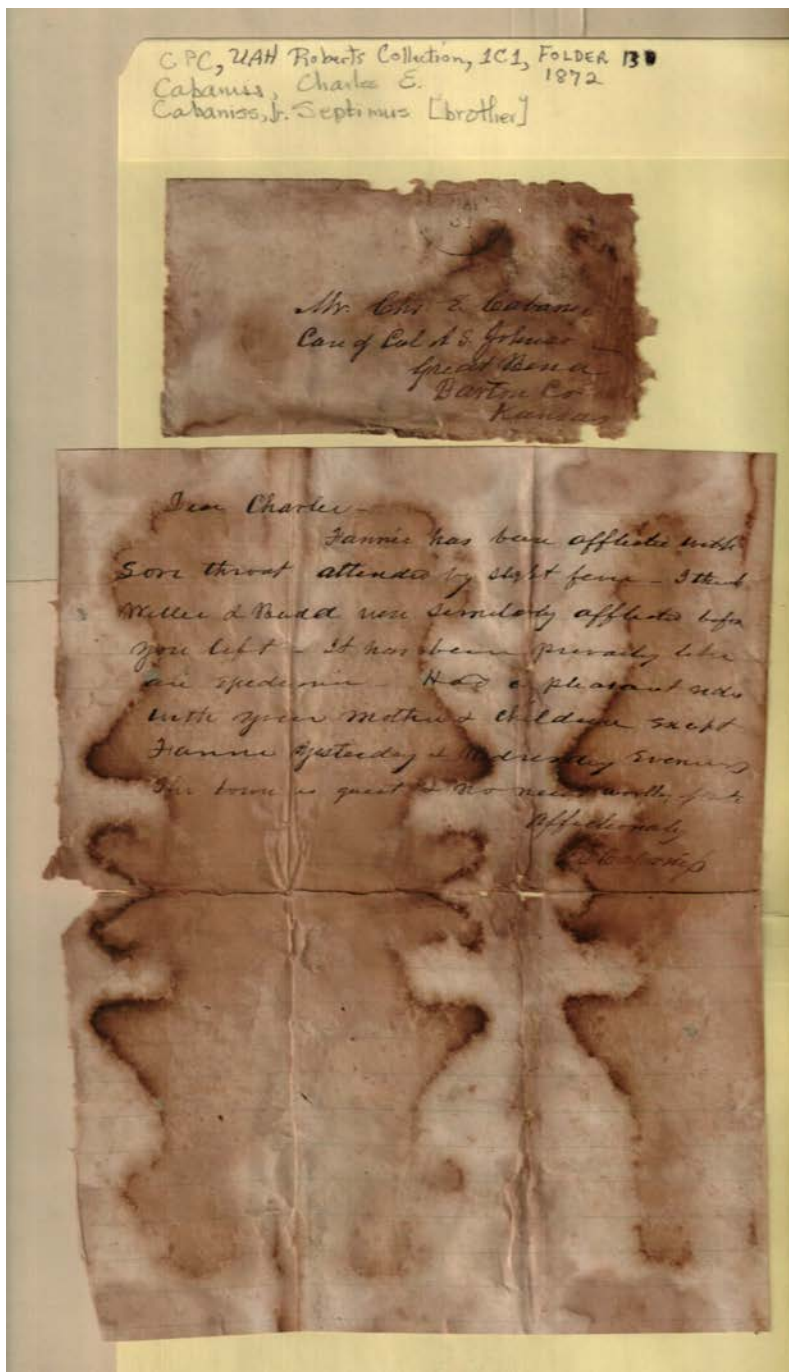 CPC, UAH Roberts Collection, 1C1, FOLDER 13
1872
Cabaniss, Charles E.
Cabaniss, Jr. Septimus [brother]
Mr. Chs E. Cabaniss
Care of Col A S. Johnson
Great Bend
Barton Co
Kansas
Dear Charlie –
Fannie has been afflicted with
Sore throat attended by slight fever – I think
Willie & Budd were similarly afflicted before
you left – It has been prevailing like
an epedemic – Had a pleasant ride
with your Mother & children except
Fannie yesterday & Wednesday Evenings
The town is quiet & no news worthy of
Affectionately
Cabaniss